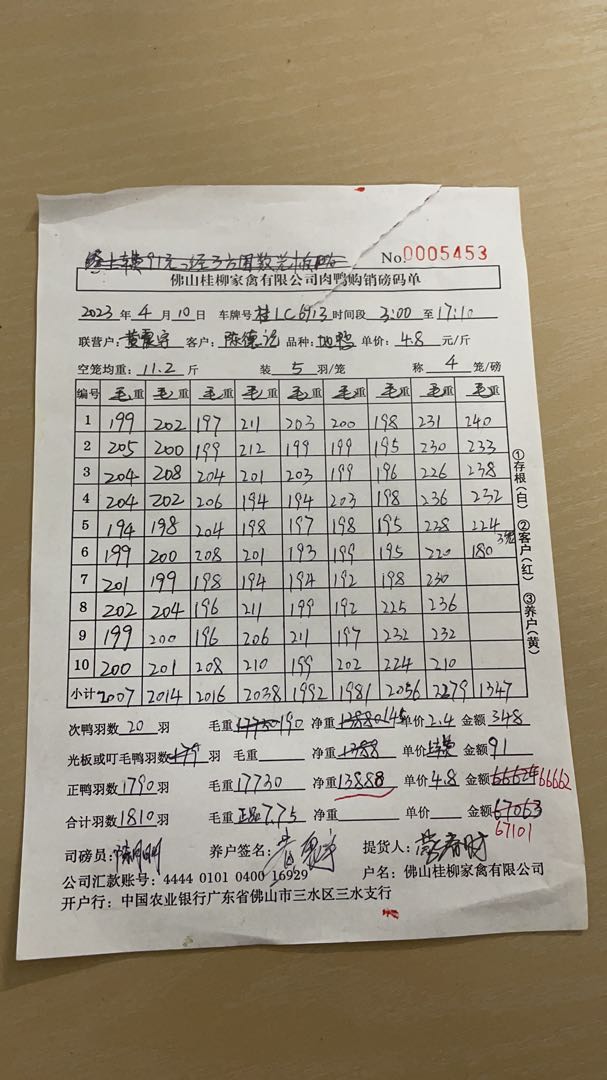 No.0005453
佛山桂柳家禽有限公司肉鸭购销磅码单
2023年4月10日 车牌号桂1C6913时间段3:00至17:10
联营户: 客户: 品种: 单价:4.8元/斤
空笼均重:11.2斤 装5羽/笼 称4笼/磅
编号 毛重 毛重 毛重 毛重 毛重 毛重 毛重 毛重 毛重
1 199 202 197 211 203 200 198 231 240
2 205 200 199 212 199 199 195 230 233
3 204 208 204 201 203 199 196 226 238
4 204 202 206 194 194 203 198 236 232
5 194 198 204 198 197 198 195 228 224
6 199 200 208 201 193 199 195 220 180 3笼
7 201 199 198 194 194 192 198 230
8 202 204 196 211 199 192 225 236
9 199 200 196 206 211 197 232 232
10 200 201 208 210 199 202 224 210
小计 2007 2014 2016 2038 1992 1981 2056 2279 1347
次鸭羽数20羽 毛重17730 190 净重13880 145 单价2.4 金额348
光板或叮毛鸭羽数179羽 毛重 净重1388 单价 金额91
正鸭羽数1790羽 毛重17730 净重13888 单价4.8 金额66624 66662
合计羽数1810羽 毛重正品7.75 净重 单价 金额67063
67101
司磅员: 养户签名: 提货人:
公司汇款账号:4444 0101 0400 16929 户名:佛山桂柳家禽有限公司
开户行:中国农业银行广东省佛山市三水区三水支行
①存根(白) ②客户(红) ③养户(黄)